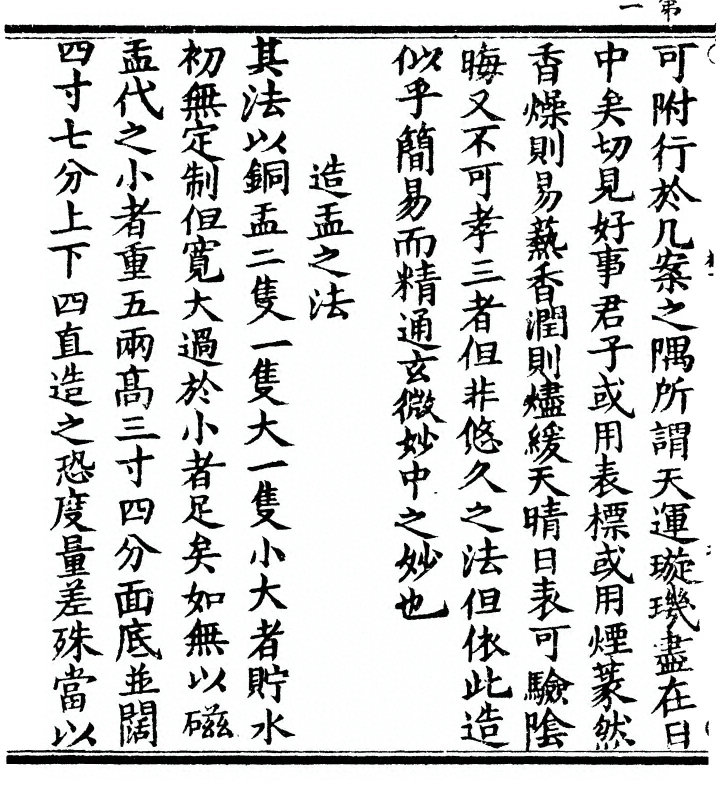 第一
可附行於几案之隅所謂天運璇璣盡在日
中矣切見好事君子或用表標或用煙篆然
香燥則易爇香潤則燼緩天晴日表可驗陰
晦又不可孝三者但非悠久之法但依此造
似乎簡易而精通玄微妙中之妙也
造盂之法
其法以銅盂二隻一隻大一隻小大者貯水
初無定制但寬大過於小者足矣如無以磁
盂代之小者重五兩高三寸四分面底並闊
四寸七分上下四直造之恐度量差殊當以